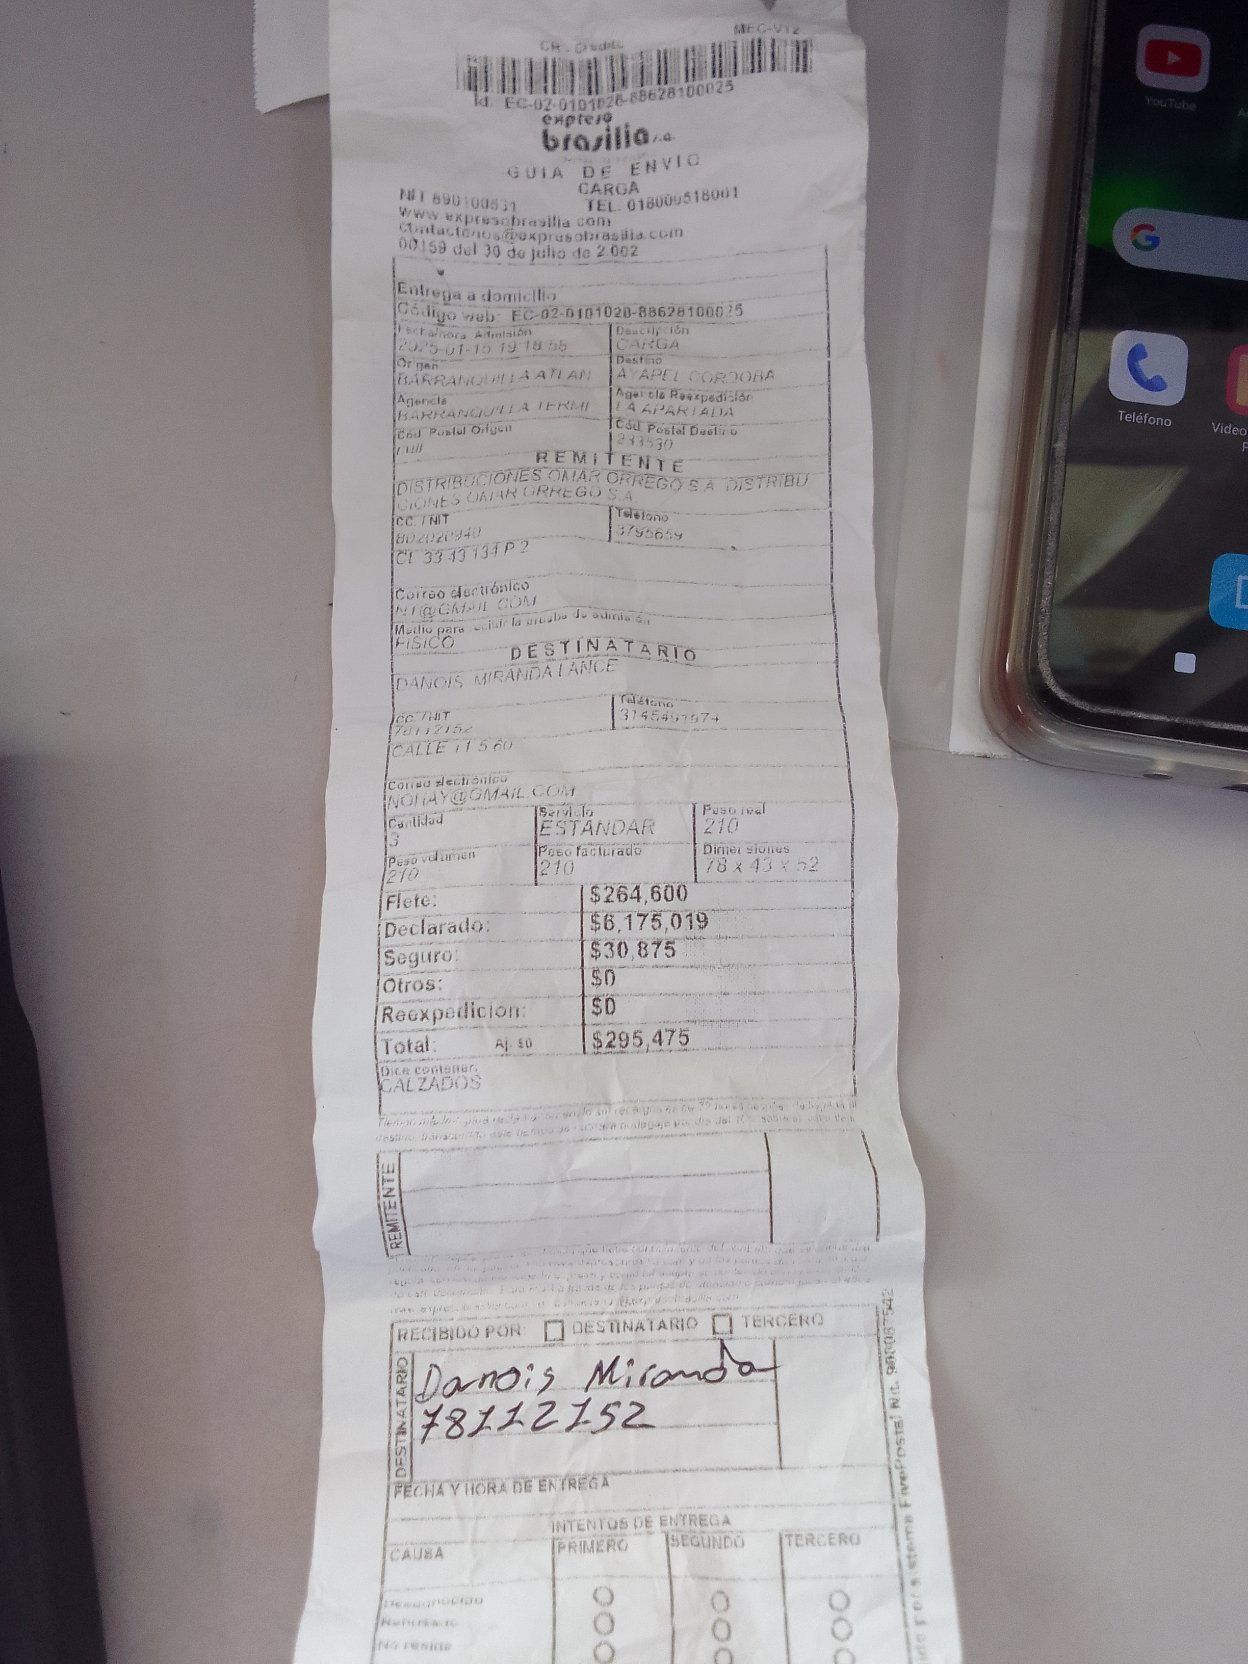 CR. Credito
MEC-V12
Id. EC-02-0101028-88628100025
expreso
brasilia s.a.
GUIA DE ENVIO
CARGA
NIT 890100531 TEL. 018000518001
www.expresobrasilia.com
contactenos@expresobrasilia.com
00159 del 30 de julio de 2.002
Entrega a domicilio
Código web: EC-02-0101028-88628100025
Fecha/hora Admisión Descripción
2025-01-15 19:18:58 CARGA
Origen Destino
BARRANQUILLA ATLAN AYAPEL CORDOBA
Agencia Agencia Reexpedición
BARRANQUILLA TERMI LA APARTADA
Cod. Postal Origen Cód. Postal Destino
null 233530
REMITENTE
DISTRIBUCIONES OMAR ORREGO S.A DISTRIBU
CIONES OMAR ORREGO S.A
CC. / NIT Teléfono
802020940 3795659
CL 33 43 134 P 2
Correo electrónico
NT@GMAIL.COM
Medio para recibir la prueba de admisión
FISICO
DESTINATARIO
DANOIS MIRANDA LANCE
CC. / NIT Teléfono
78112152
CALLE 11 5 60
Correo electrónico
NOHAY@GMAIL.COM
Cantidad Servicio Peso real
3 ESTÁNDAR 210
Peso volumen Peso facturado Dimensiones
210 210 78 x 43 x 52
Flete: $264,600
Declarado: $6,175,019
Seguro: $30,875
Otros: $0
Reexpedición: $0
Total: Aj. $0 $295,475
Dice contener:
CALZADOS
REMITENTE
RECIBIDO POR: DESTINATARIO TERCERO
DESTINATARIO
Danois Miranda
78112152
FECHA Y HORA DE ENTREGA
INTENTOS DE ENTREGA
CAUSA PRIMERO SEGUNDO TERCERO
Desconocido
Rehusado
No reside
sistema FivePostal Nit.
YouTube
Teléfono
Video